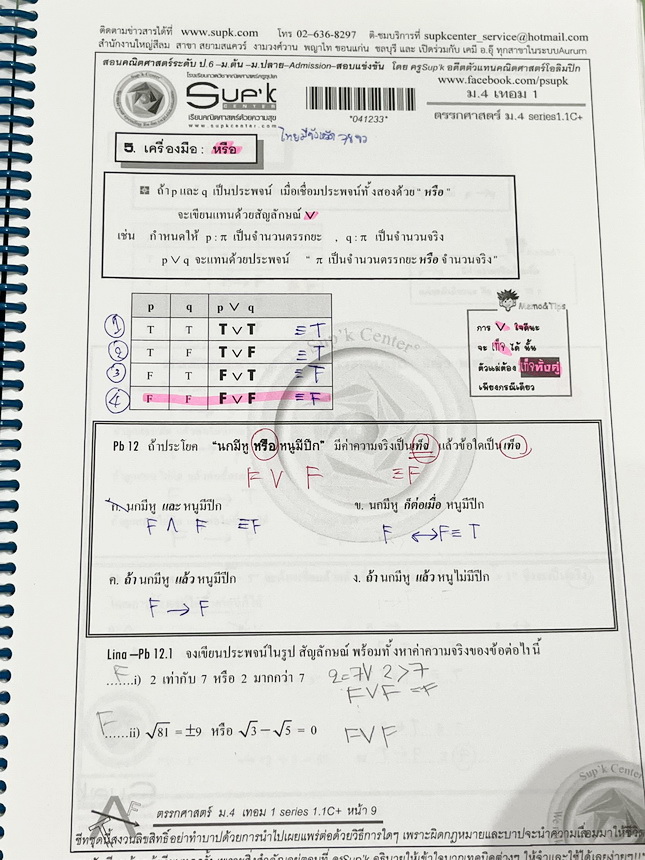 ติดตามข่าวสารได้ที่ www.supk.com โทร 02-636-8297 ติ-ชมบริการที่ supkcenter_service@hotmail.com
สำนักงานใหญ่สีลม สาขา สยามสแควร์ งามวงศ์วาน พญาไท ขอนแก่น ชลบุรี และ เปิดร่วมกับ เคมี อ.อุ๊ ทุกสาขาในระบบAurum
สอนคณิตศาสตร์ระดับ ป.6 –ม.ต้น –ม.ปลาย–Admission–สอบแข่งขัน โดย ครูSup'k อดีตตัวแทนคณิตศาสตร์โอลิมปิก
โรงเรียนกวดวิชาคณิตศาสตร์ครูซุปเค
Sup'k
CENTER
เรียนคณิตศาสตร์ด้วยความสุข
www.supkcenter.com
*041233*
www.facebook.com/psupk
ม.4 เทอม 1
ตรรกศาสตร์ ม.4 series1.1C+
5. เครื่องมือ : หรือ
ถ้า p และ q เป็นประพจน์ เมื่อเชื่อมประพจน์ทั้งสองด้วย "หรือ"
จะเขียนแทนด้วยสัญลักษณ์ ∨
เช่น กำหนดให้ p : π เป็นจำนวนตรรกยะ , q : π เป็นจำนวนจริง
p ∨ q จะแทนด้วยประพจน์ " π เป็นจำนวนตรรกยะ หรือ จำนวนจริง"
p q p ∨ q
① T T T ∨ T ≡ T
② T F T ∨ F ≡ T
③ F T F ∨ T ≡ F
④ F F F ∨ F ≡ F
Memo&Tips
การ ∨ ใจดีนะ
จะ เท็จ ได้ นั้น
ตัวแม่ต้อง เท็จทั้งคู่
เพียงกรณีเดียว
Sup'k Center
Pb 12 ถ้าประโยค "นกมีหู หรือ หนูมีปีก" มีค่าความจริงเป็น เท็จ แล้วข้อใดเป็น เท็จ
F ∨ F ≡ F
ก. นกมีหู และ หนูมีปีก ข. นกมีหู ก็ต่อเมื่อ หนูมีปีก
F ∧ F ≡ F F ↔ F ≡ T
ค. ถ้า นกมีหู แล้ว หนูมีปีก ง. ถ้า นกมีหู แล้ว หนูไม่มีปีก
F → F
Lina –Pb 12.1 จงเขียนประพจน์ในรูป สัญลักษณ์ พร้อมทั้งหาค่าความจริงของข้อต่อไปนี้
F ......i) 2 เท่ากับ 7 หรือ 2 มากกว่า 7 2=7 ∨ 2>7
F ∨ F ≡ F
F ......ii) √81 = ±9 หรือ √3 − √5 = 0 F ∨ F
Sup'k Center
ตรรกศาสตร์ ม.4 เทอม 1 series 1.1C+ หน้า 9